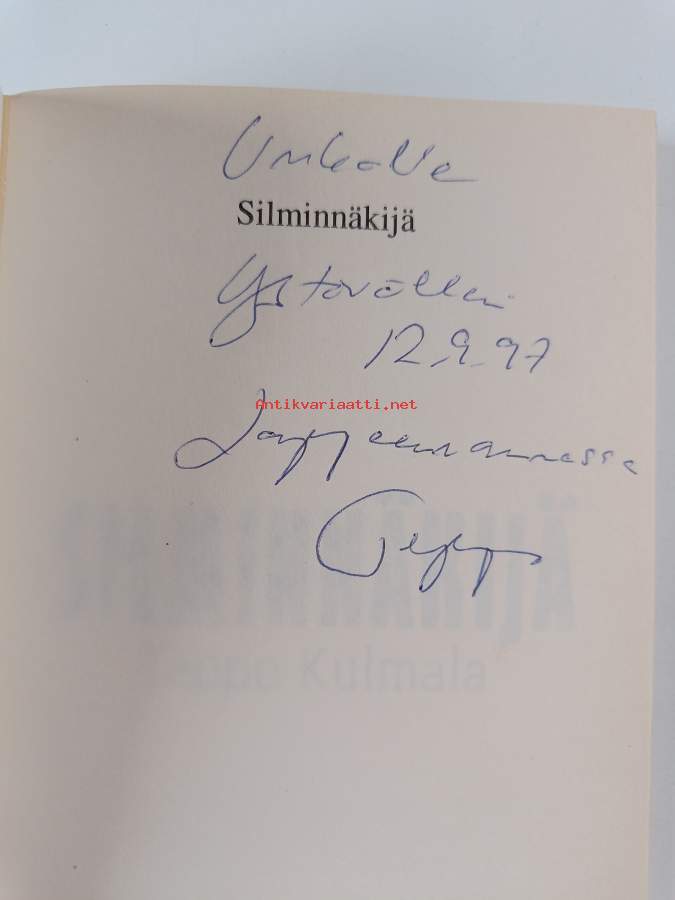 Urholle
Silminnäkijä
Ystävällisin
12.9.97
Antikvariaatti.net
Lappeenrannassa
Teppo
SILMINNÄKIJÄ
Teppo Kulmala